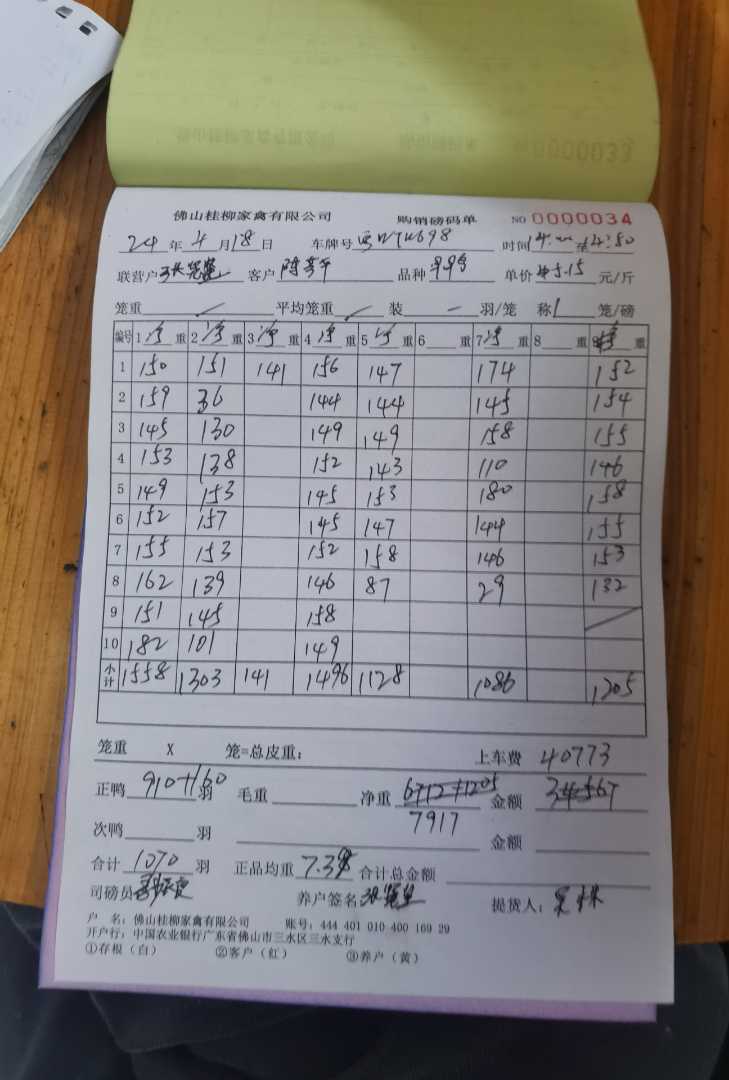 0000033
佛山桂柳家禽有限公司 购销磅码单 NO 0000034
24 年 4 月 18 日 车牌号 698 时间 14: 至 14:50
联营户 客户 陈 品种 单价 5.15 元/斤
笼重 平均笼重 装 羽/笼 称 1 笼/磅
编号 1 净 重 2 净 重 3 净 重 4 净 重 5 净 重 6 重 7 净 重 8 重 重
1 150 151 141 156 147 174 152
2 159 36 144 144 145 154
3 145 130 149 149 158 155
4 153 138 152 143 110 146
5 149 153 145 153 180 158
6 152 157 145 147 144 155
7 155 153 152 158 146 153
8 162 139 146 87 29 132
9 151 145 158
10 182 101 149
小计 1558 1303 141 1496 1128 1086 1205
笼重 X 笼=总皮重: 上车费 40773
正鸭 910+160 羽 毛重 净重 6712+1205 金额 34567
7917
次鸭 羽 金额
合计 1070 羽 正品均重 7.39 合计总金额
司磅员 养户签名 提货人:
户 名: 佛山桂柳家禽有限公司 账号: 444 401 010 400 169 29
开户行: 中国农业银行广东省佛山市三水区三水支行
①存根(白) ②客户(红) ③养户(黄)